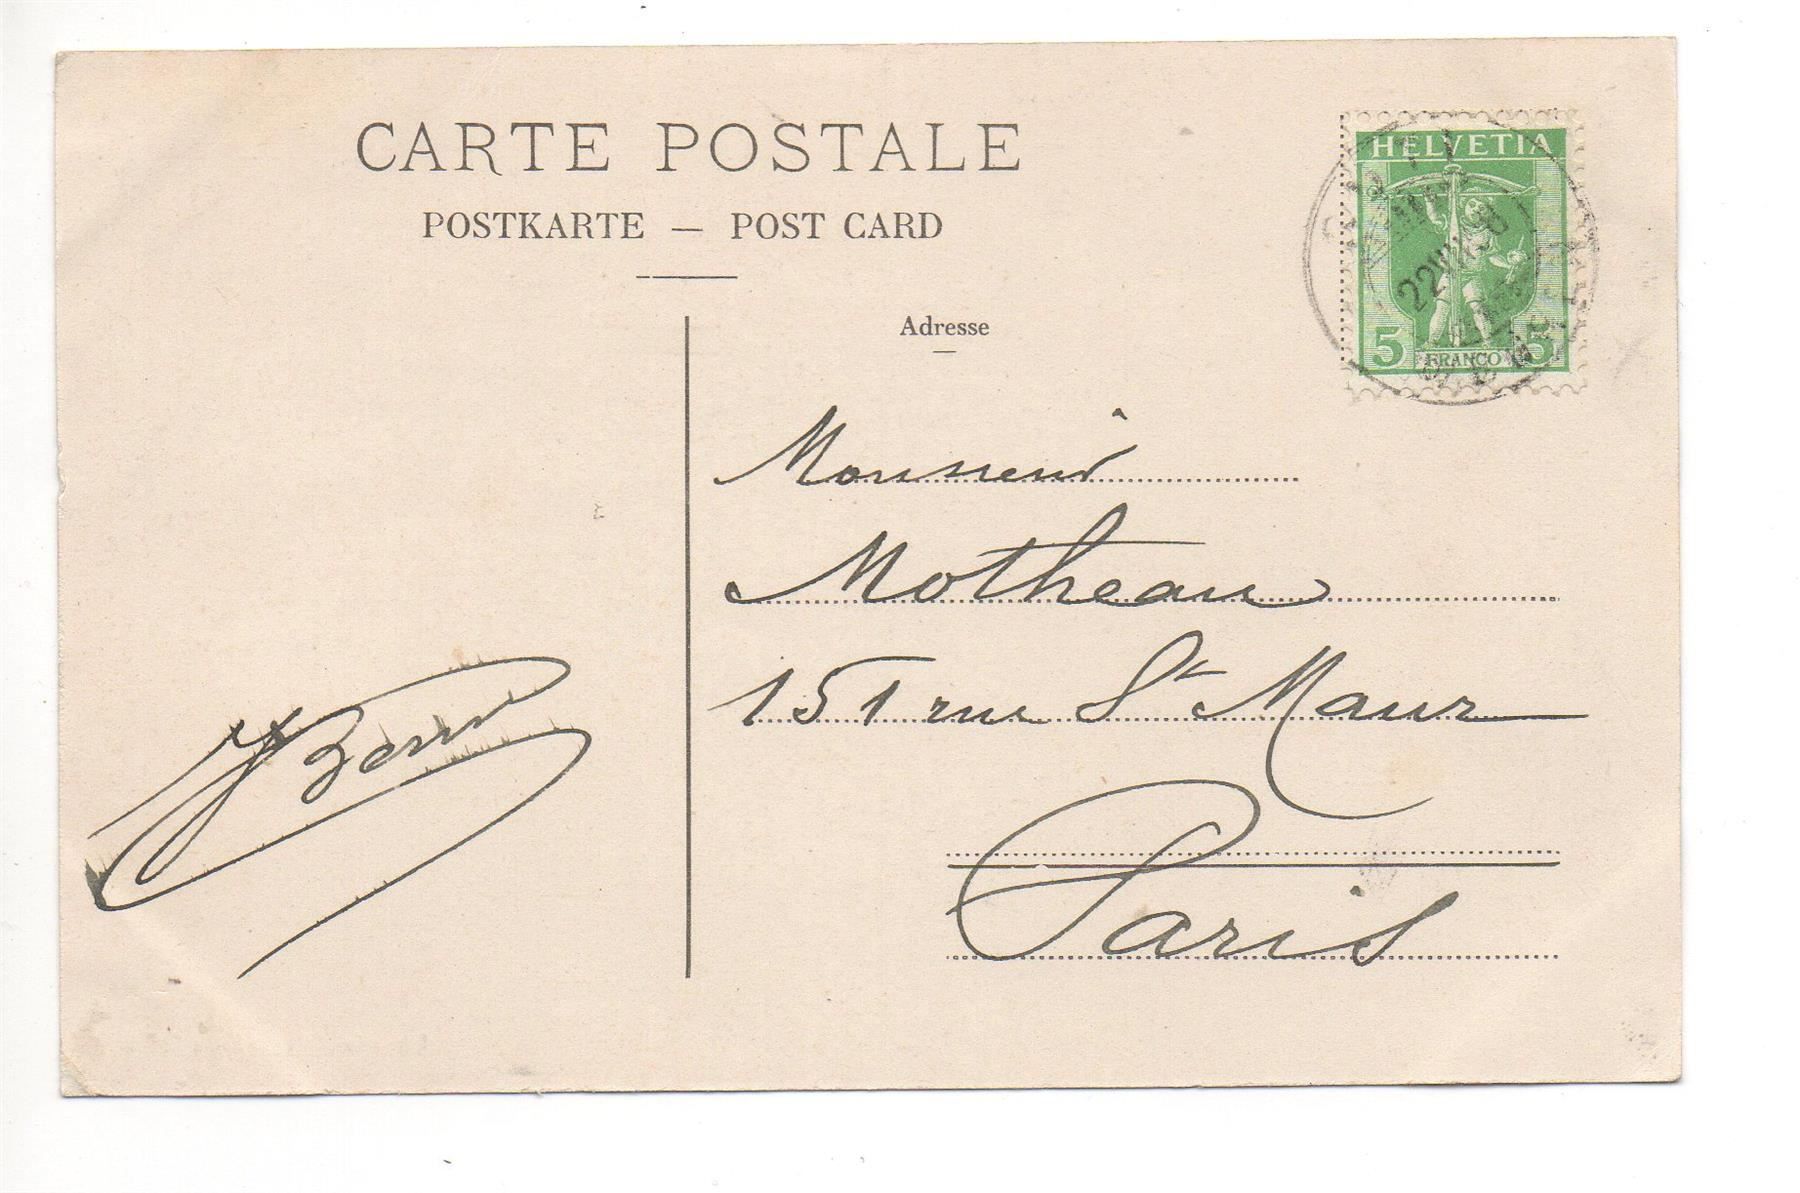 CARTE POSTALE
POSTKARTE — POST CARD
HELVETIA
5 FRANCO 5
Adresse
Monsieur
Motheau
151 rue St Maur
Paris